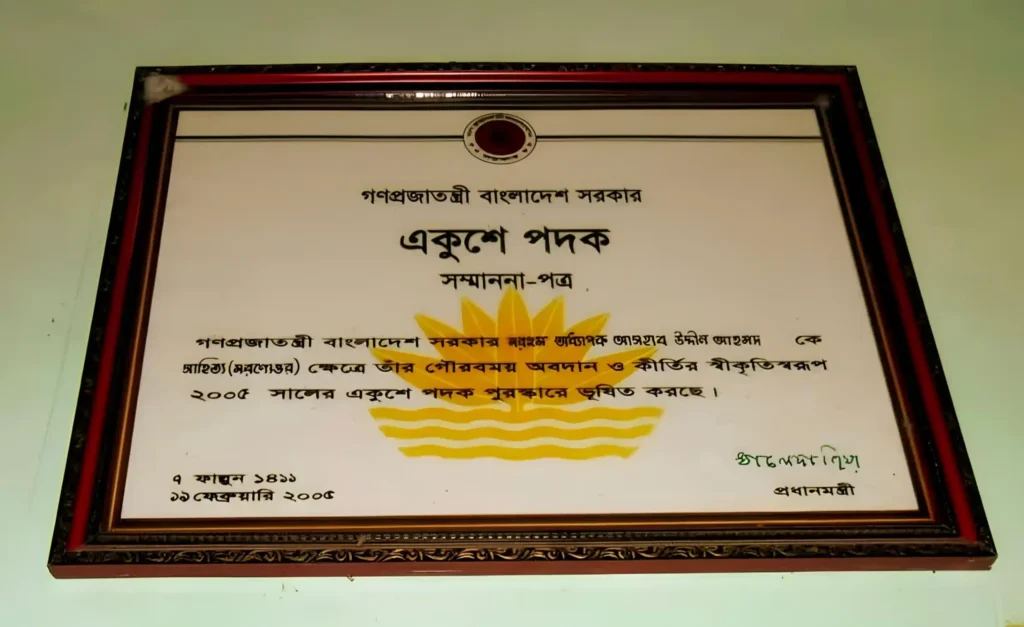 গণপ্রজাতন্ত্রী বাংলাদেশ সরকার
একুশে পদক
সম্মাননা-পত্র
গণপ্রজাতন্ত্রী বাংলাদেশ সরকার মরহুম অধ্যাপক আসহাব উদ্দীন আহমদ কে
সাহিত্য (মরণোত্তর) ক্ষেত্রে তাঁর গৌরবময় অবদান ও কীর্তির স্বীকৃতিস্বরূপ
২০০৫ সালের একুশে পদক পুরস্কারে ভূষিত করছে।
৭ ফাল্গুন ১৪১১
১৯ ফেব্রুয়ারি ২০০৫
খালেদা জিয়া
প্রধানমন্ত্রী